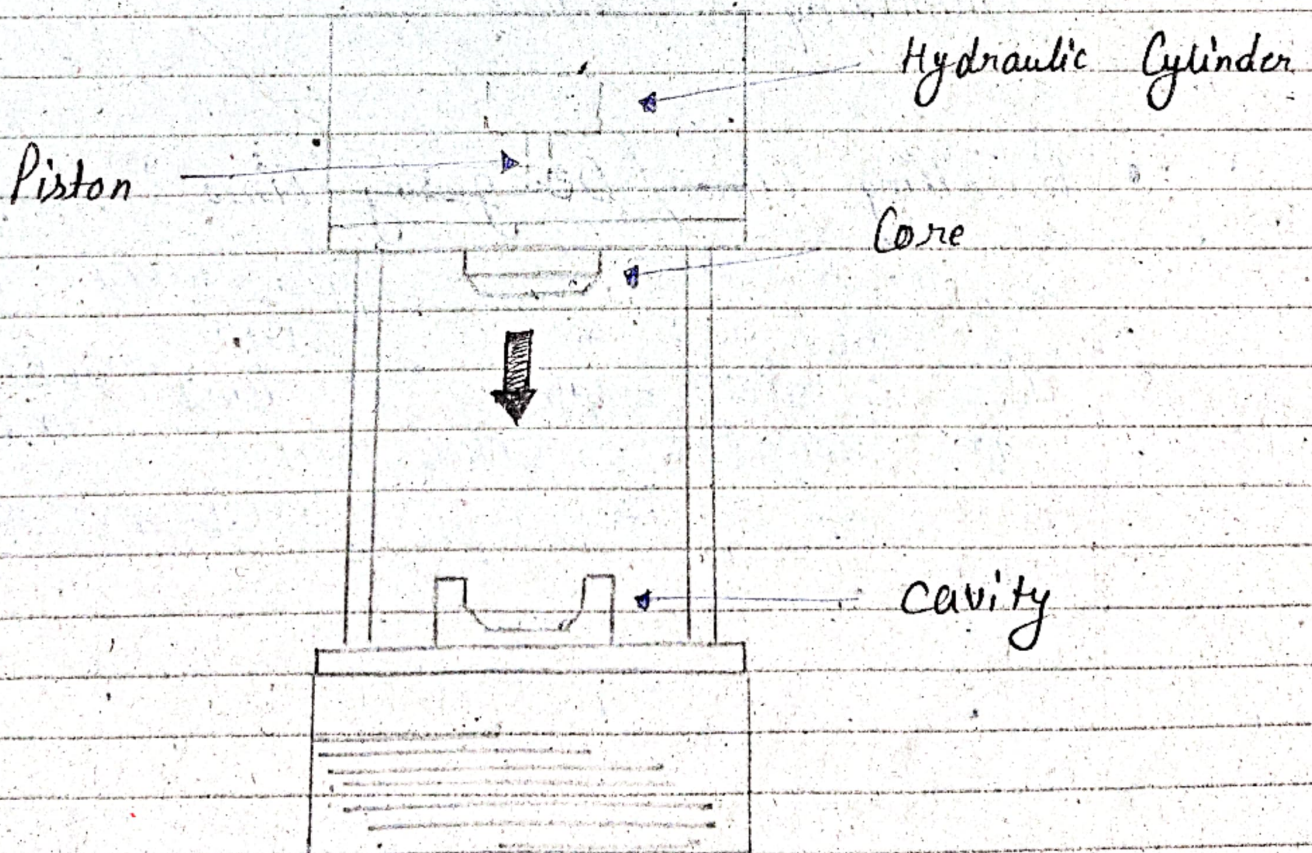 Hydraulic Cylinder
Piston
Core
cavity